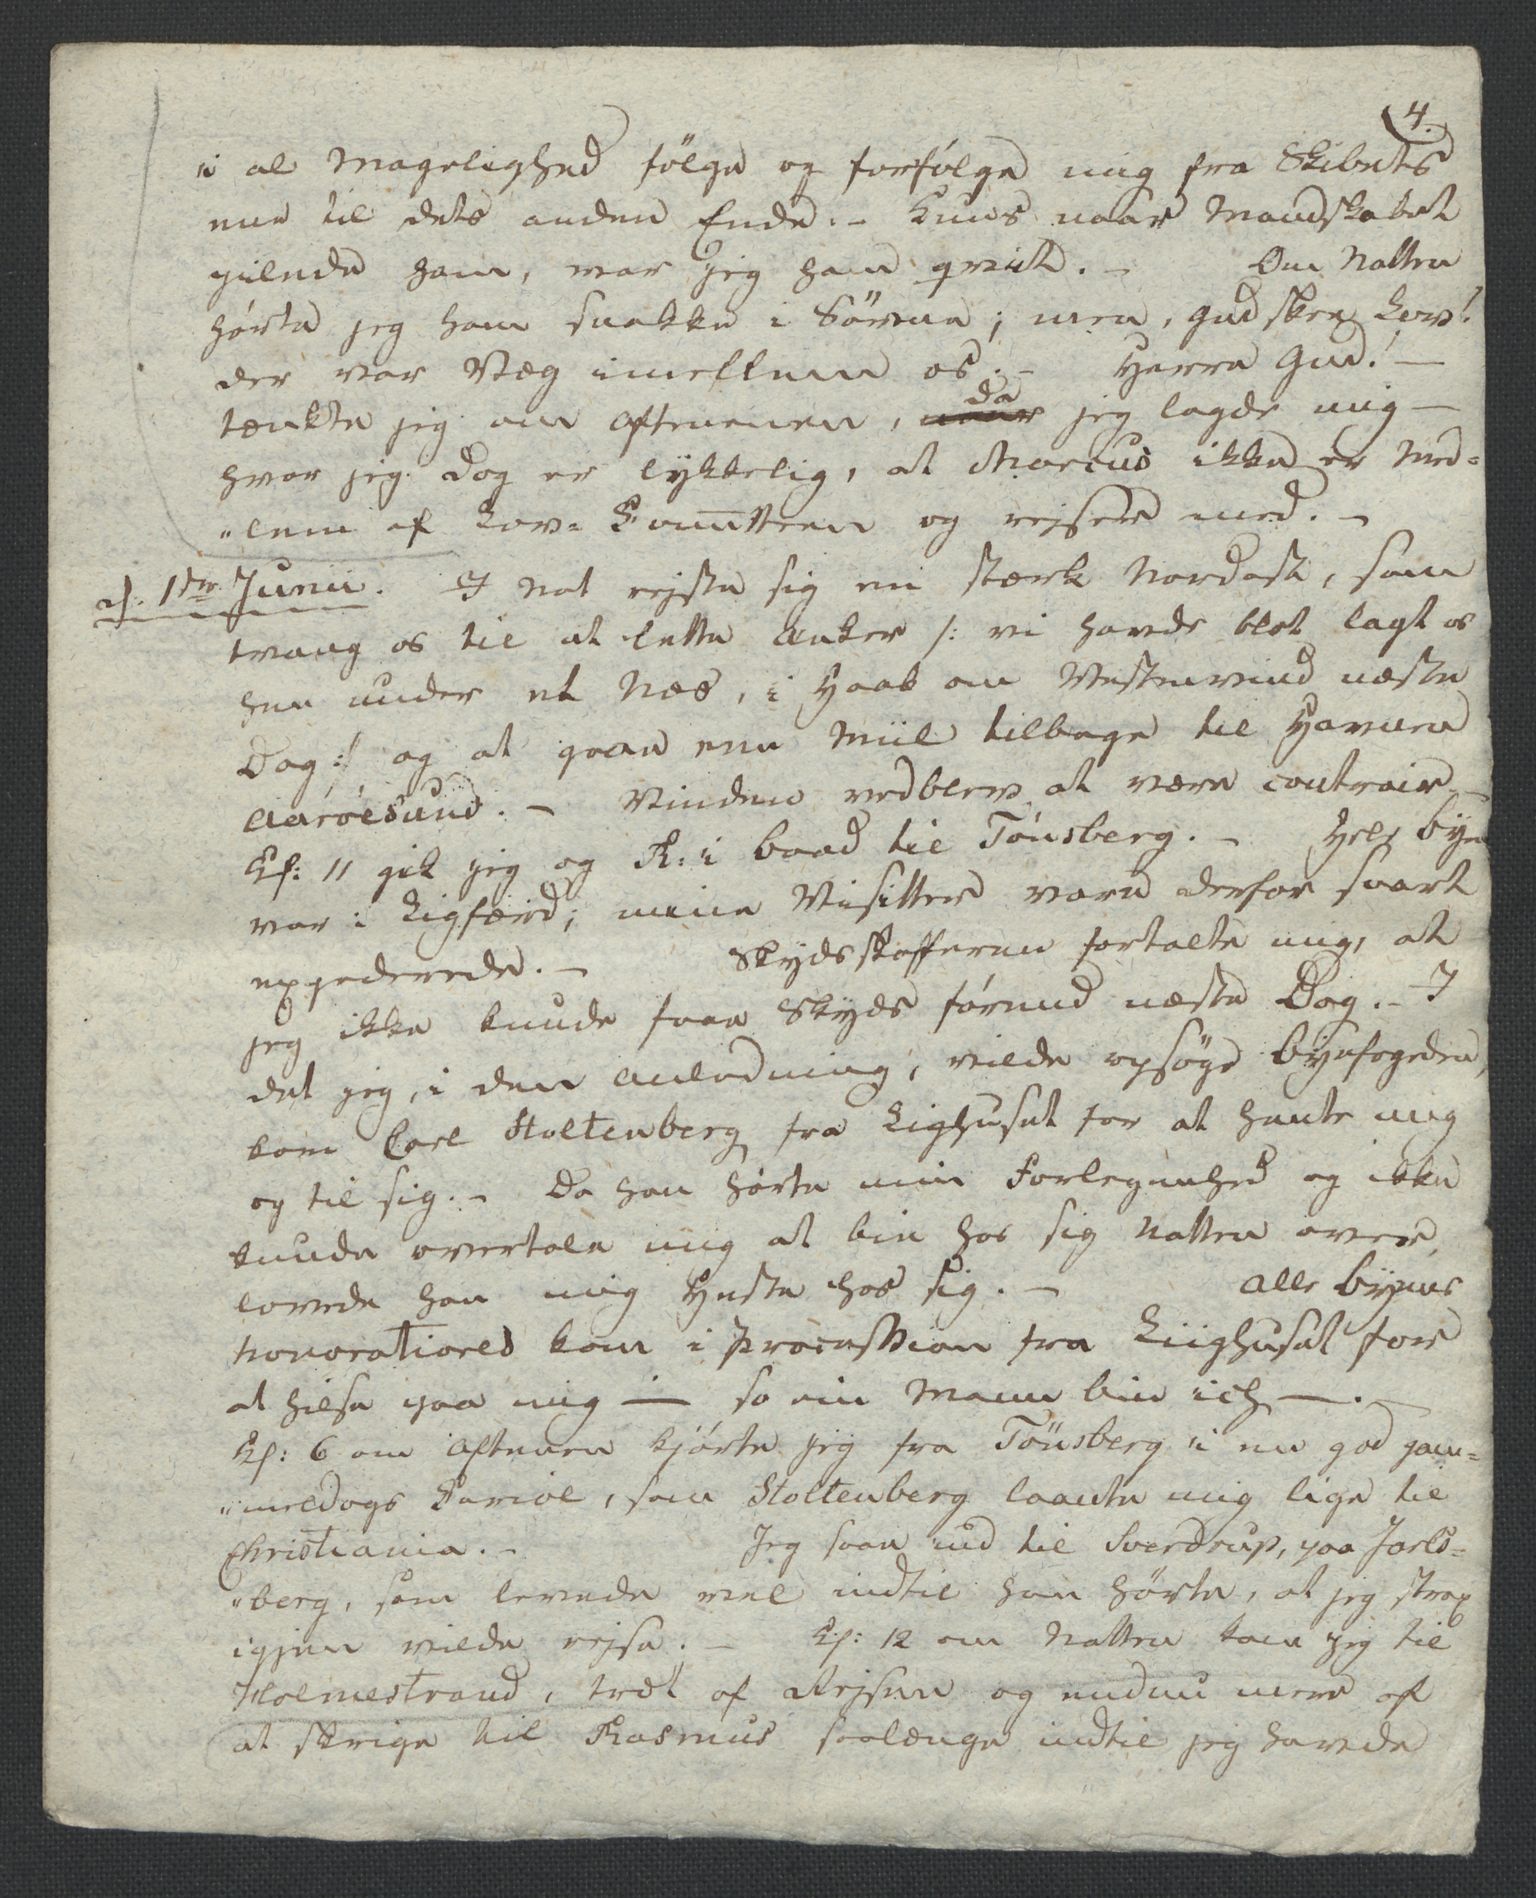 4.
i al Magelighed følge og forfølge mig fra Skibets
ene til dets anden Ende. – Kuns naar Mandskabet
pilede ham, var jeg ham qvit. – Om Natten
hørte jeg ham snakke i Søvne; men, Gud skee Lov!
der var Væg imellem os. – Herre Gud! –
tænkte jeg om Aftenen, da jeg lagde mig –
hvor jeg dog er lykkelig, at Marcus ikke er Med=
"lem af Lov= Committeen og rejser med. –
d. 1ste Junii. I Nat rejste sig en stærk Nordost, som
tvang os til at lette Anker /: vi havde blot lagt os
hen under et Næs, i Haab om Vestenvind næste
Dag :/ og at gaae een Miil tilbage til Havnen
Aarøesund. – Vinden vedblev at være contrair. –
Kl: 11 gik jeg og R: i Baad til Tønsberg. – Hele Byen
var i Ligfærd; mine Visitter vare derfor snart
expederede. – Skydsskafferen fortalte mig, at
jeg ikke kunde faae Skyds førend næste Dag. – I
det jeg, i den Anledning, vilde opsøge Byefogeden,
kom Carl Stoltenberg fra Lighuset for at hente mig
og til sig. – Da han hørte min Forlegenhed og ikke
kunde overtale mig at blie hos sig Natten over,
lovede han mig Heste hos sig. – Alle Byens
Honoratiores kom i Procession fra Liighuset for
at hilse paa mig — so ein Mann bin ich —. –
Kl: 6 om Aftenen kjørte jeg fra Tønsberg i en god gam=
"meldags Cariol, som Stoltenberg laante mig lige til
Christiania. – Jeg saae ind til Sverdrup, paa Jarls=
"berg, som levede vel indtil han hørte, at jeg strax
igjen vilde rejse. – Kl: 12 om Natten kom jeg til
Holmestrand, træt af Rejsen og endnu mere af
at skrige til Rasmus saalænge indtil jeg havde